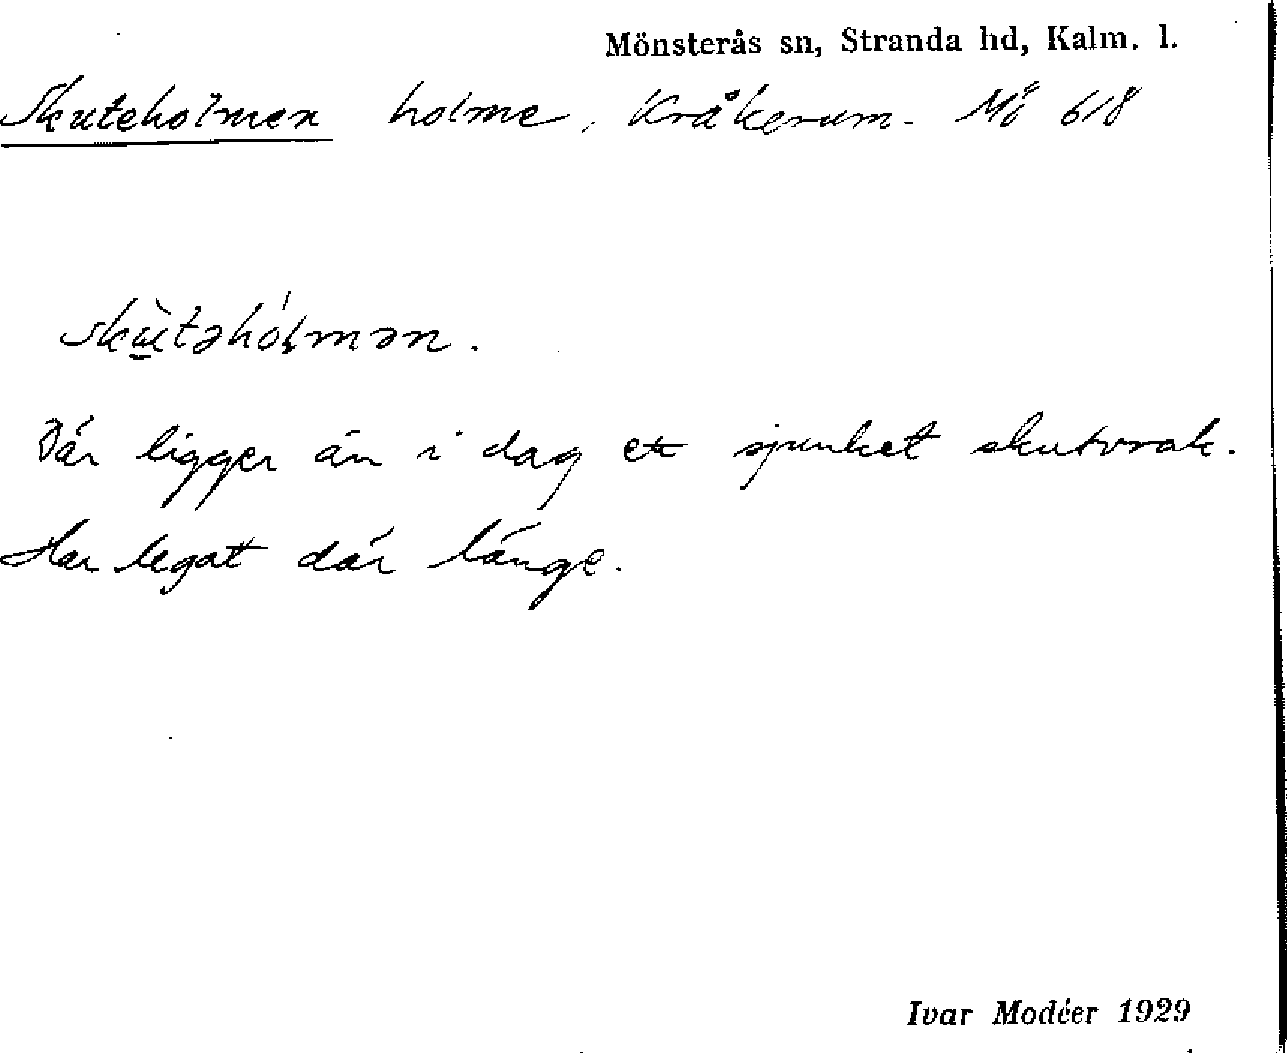 Mönsterås sn, Stranda hd, Kalm. l.
Skuteholmen holme, Kråkerum. Mö 618
skùtəhólmən.
Där ligger än i dag ett sjunket skutvrak.
Har legat där länge.
Ivar Modéer 1929